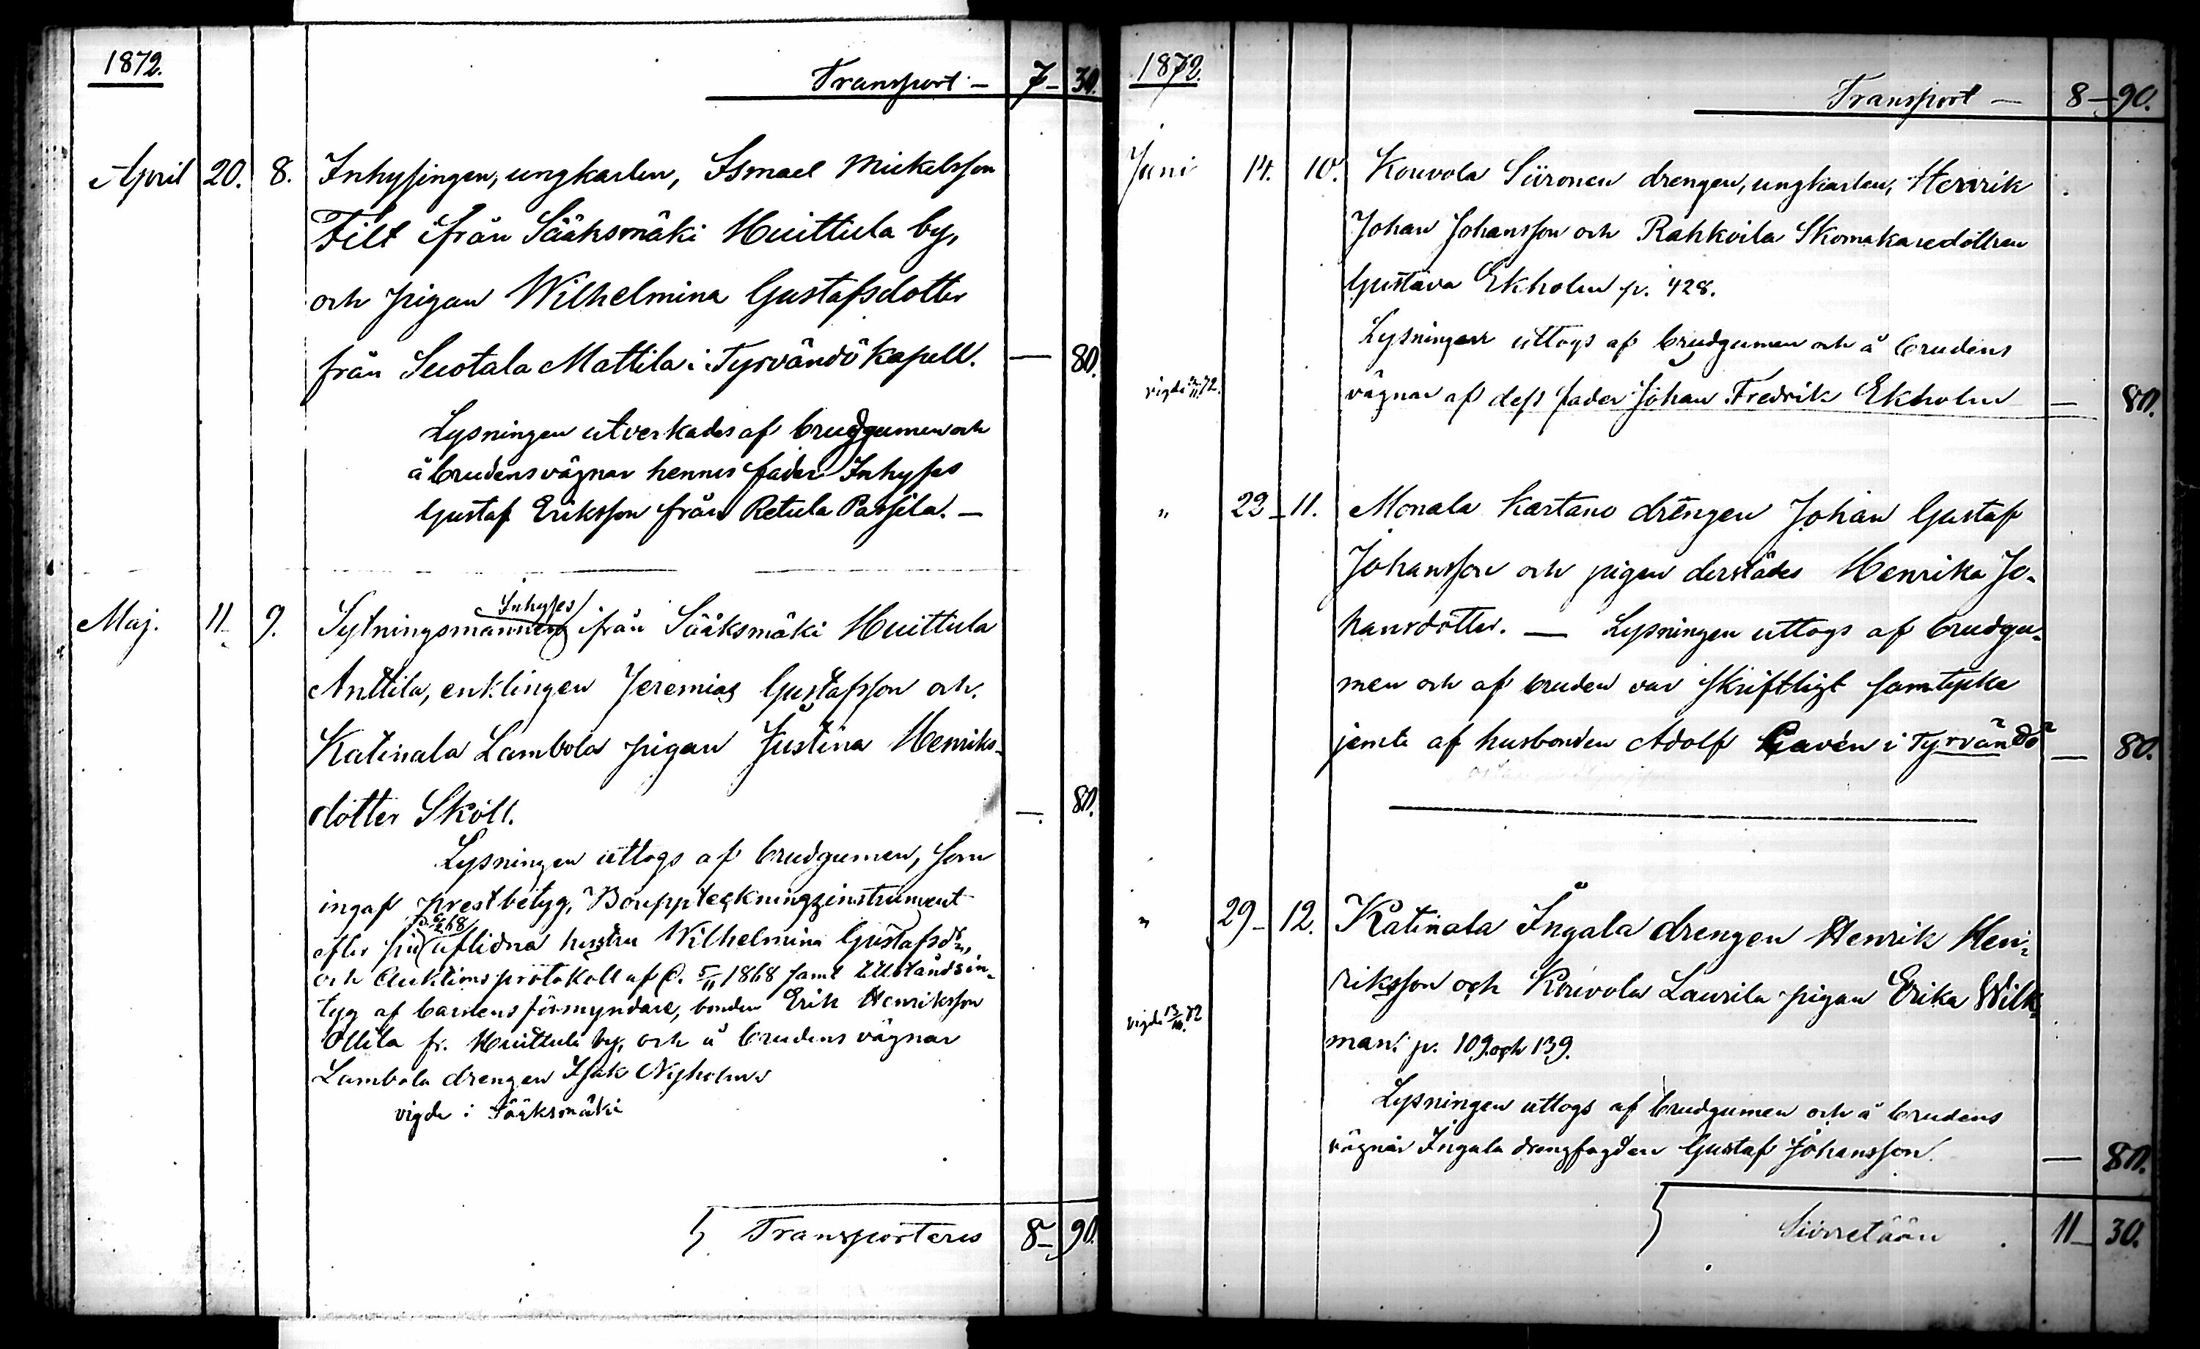 1872.
Transport — 7 — 30.
April 20. 8. Inhysingen, ungkarlen, Ismael Mickelsson
Filt ifrån Sääksmäki Huittula by,
och pigan Wilhelmina Gustafsdotter
från Suotala Mattila i Tyrvändö kapell. — 80.
Lysningen utverkades af brudgumen och
å brudens vägnar hennes fader Inhyses
Gustaf Eriksson från Retula Passila. —
Inhyses
Maj. 11. 9. Sytningsmannen ifrån Sääksmäki Huittula
Anttila, enklingen Jeremias Gustafsson och
Katinala Lambola pigan Justina Henriks-
dotter Sköll. — 80.
Lysningen uttogs af brudgumen, som
ingaf prestbetyg, Bouppteckningsinstrument
efter sin aflidna hustru Wilhelmina Gustafsdr,
och Auktionsprotokoll af d. 5/11 1868 samt tillståndsin-
tyg af barnens förmyndare, bonden Erik Henriksson
Ollila fr. Huittula by, och å brudens vägnar
Lambola drengen Isak Nyholm
vigde i Sääksmäki
Transporteres 8 — 90.
1872.
Transport — 8 — 90.
Juni 14. 10. Kouvola Siironen drengen, ungkarlen, Henrik
Johan Johansson och Rahkoila Skomakaredottren
Gustava Ekholm p. 428.
Lysningen uttogs af brudgumen och å brudens
vigde 72.
vägnar af dess fader Johan Fredrik Ekholm — 80.
" 22 — 11. Monala Kartano drengen Johan Gustaf
Johansson och pigan derstädes Henrika Jo-
hansdotter. — Lysningen uttogs af brudgu-
men och af bruden var skriftligt samtycke
jemte af husbonden Adolf Gavén i Tyrvändö — 80.
" 29 — 12. Katinala Ingala drengen Henrik Hen-
riksson och Kouvola Laurila pigan Erika Wilk-
vigde 13/10 72
man. p. 109 och 139.
Lysningen uttogs af brudgumen och å brudens
vägnar Ingala drengfogden Gustaf Johansson. — 80.
Siirretään 11 — 30.